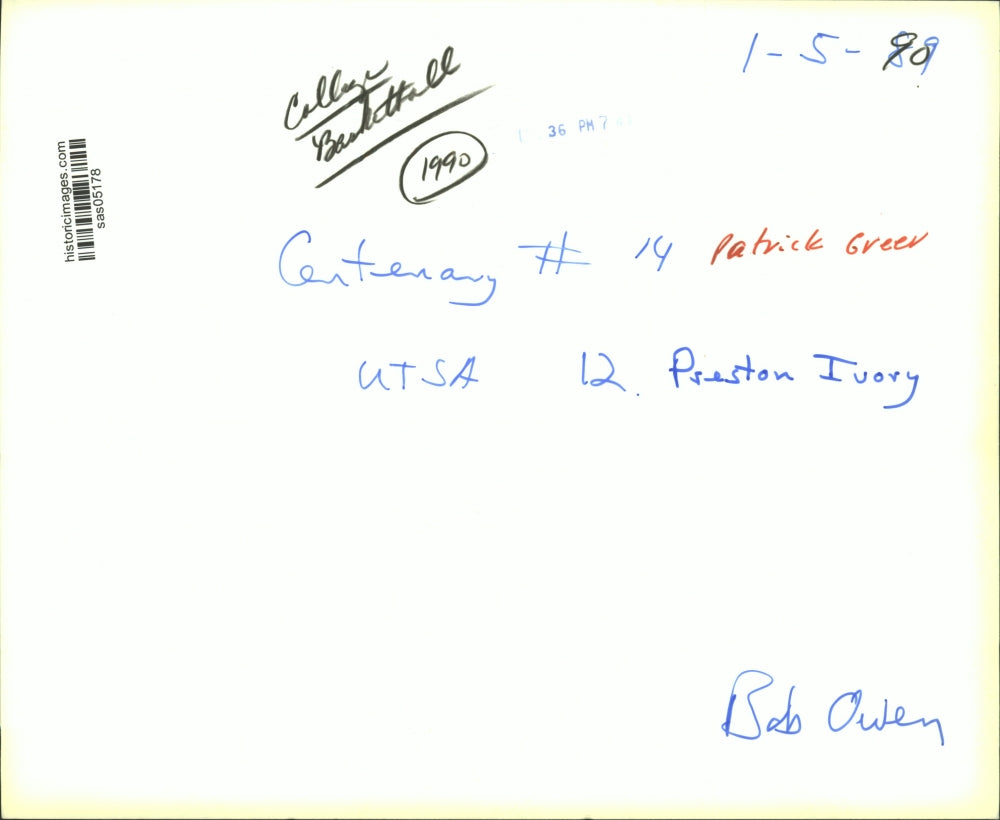 1-5-90
College
Basketball
1990
36 PM 7
historicimages.com
sas05178
Centenary # 14 Patrick Greer
UTSA 12. Preston Ivory
Bob Owen